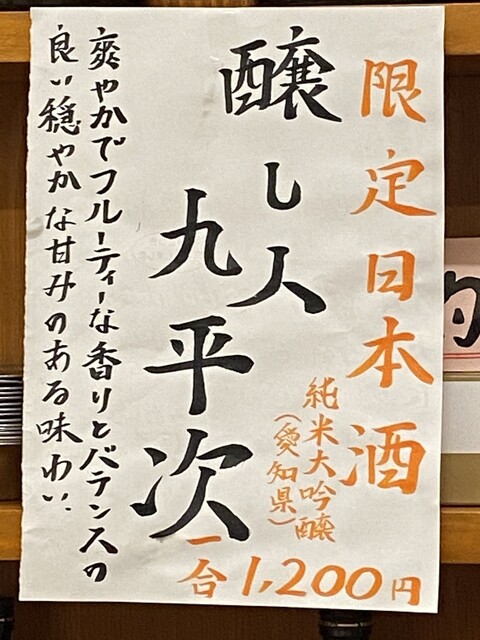 限定日本酒
醸し人
九平次
純米大吟醸
(愛知県)
一合1,200円
爽やかでフルーティーな香りとバランスの
良い穏やかな甘みのある味わい。